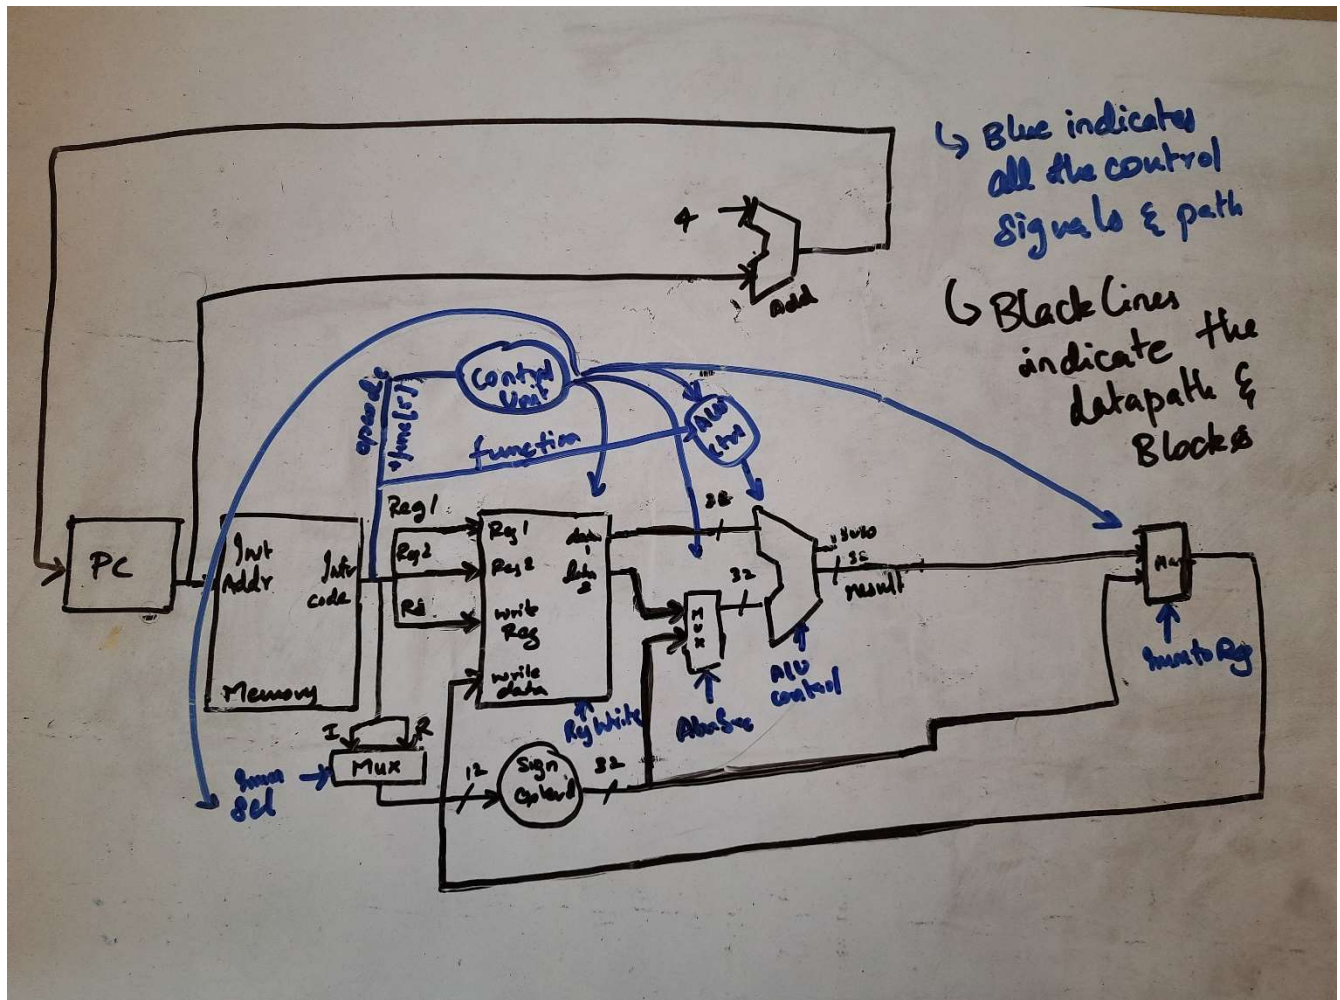 ↳ Blue indicates
all the control
signals & path
↳ Black lines
indicate the
datapath &
Blocks
4
Add
Control
Unit
opcode
+func[5]
function
ALU
Ctrl
PC
Inst
Addr
Instr
code
Memory
Reg1
Reg2
Rd
Reg1
Reg2
write
Reg
write
data
data
1
data
2
RegWrite
32
32
MUX
AluSrc
zero
32
result
ALU
control
Mux
ImmtoReg
I
R
Mux
Imm
Sel
12
Sign
Extend
32